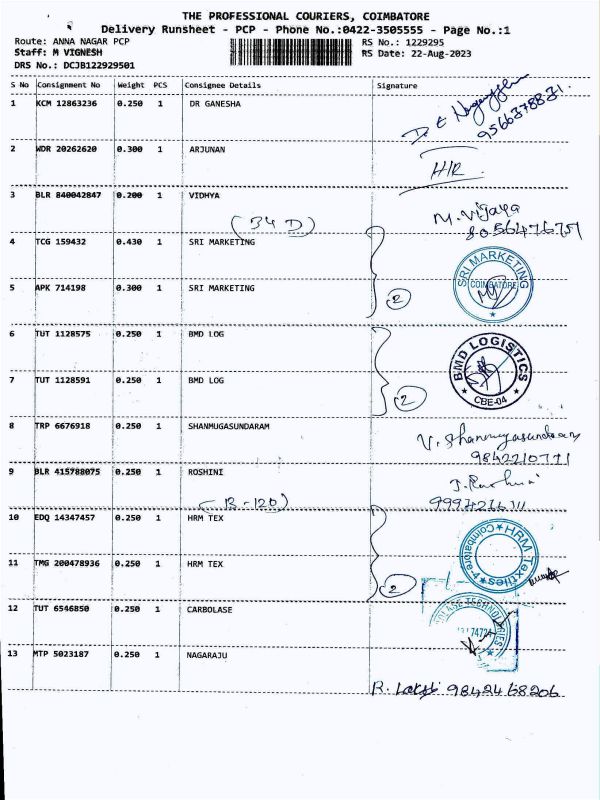 THE PROFESSIONAL COURIERS, COIMBATORE
Delivery Runsheet - PCP - Phone No.:0422-3505555 - Page No.:1
Route: ANNA NAGAR PCP RS No.: 1229295
Staff: M VIGNESH RS Date: 22-Aug-2023
DRS No.: DCJB122929501
S No Consignment No Weight PCS Consignee Details Signature
1 KCM 12863236 0.250 1 DR GANESHA
9566378831
2 WDR 20262620 0.300 1 ARJUNAN
H/R
3 BLR 840042847 0.200 1 VIDHYA
M. Vijaya
(34 D)
4 TCG 159432 0.430 1 SRI MARKETING
SRI MARKETING
COIMBATORE
5 APK 714198 0.300 1 SRI MARKETING
2
6 TUT 1128575 0.250 1 BMD LOG
BMD LOGISTICS
CBE-04
7 TUT 1128591 0.250 1 BMD LOG
2
8 TRP 6676918 0.250 1 SHANMUGASUNDARAM
V. Shanmugasundaram
9842210711
9 BLR 415788075 0.250 1 ROSHINI
(B-120)
10 EDQ 14347457 0.250 1 HRM TEX
HRM Textiles
Coimbatore-4
11 TMG 200478936 0.250 1 HRM TEX
2
12 TUT 6546850 0.250 1 CARBOLASE
13 MTP 5023187 0.250 1 NAGARAJU
9842468206